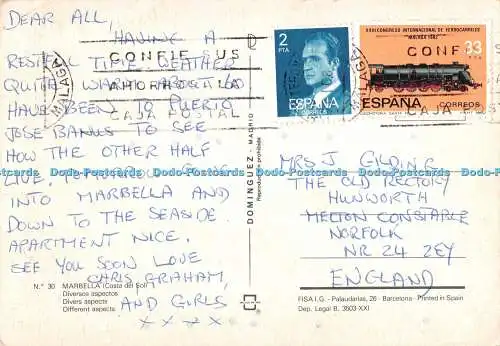 DEAR ALL,
HAVING A
RESTFUL TIME WEATHER
QUITE WARM ABOUT 60
HAVE BEEN TO PUERTO
JOSE BANUS TO SEE
HOW THE OTHER HALF
LIVE. TO
INTO MARBELLA AND
DOWN TO THE SEASIDE.
APARTMENT NICE.
SEE YOU SOON LOVE
CHRIS GRAHAM,
AND GIRLS
x x x x
N.° 30 MARBELLA (Costa del Sol)
Diversos aspectos
Divers aspects
Different aspects
CONFIE SUS
AHORROS A LA
CAJA POSTAL
MALAGA
DOMINGUEZ - MADRID
Reproducción prohibida
2
PTA
ESPAÑA
CORREOS
XXIII CONGRESO INTERNACIONAL DE FERROCARRILES
MALAGA 1982
33
PTA
ESPAÑA
CORREOS
CONF
CAJA
MRS J GILDING
THE OLD RECTORY
HUNWORTH
MELTON CONSTABLE
NORFOLK
NR 24 2EY
ENGLAND
FISA I.G. - Palaudarias, 26 - Barcelona - Printed in Spain
Dep. Legal B. 3503-XXI
Dodo-Postcards Dodo-Postcards Dodo-Postcards Dodo-Postcards Dodo-Postcards Dodo-Postcards